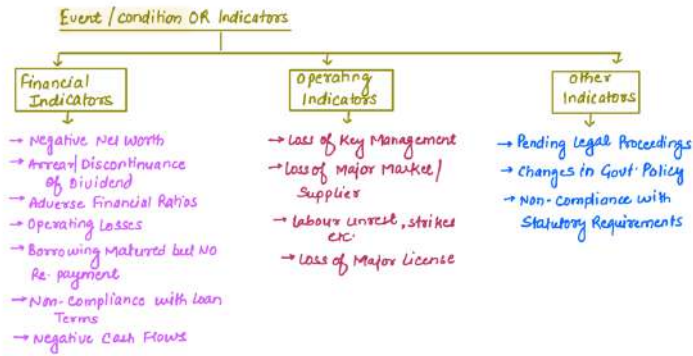 Event/condition OR Indicators
Financial
Indicators
→ Negative Net Worth
→ Arrear/Discontinuance
of Dividend
→ Adverse Financial Ratios
→ Operating Losses
→ Borrowing Matured but NO
Re-payment
→ Non-compliance with Loan
Terms
→ Negative Cash Flows
Operating
Indicators
→ Loss of Key Management
→ Loss of Major Market/
Supplier
→ Labour unrest, strikes
etc.
→ Loss of Major License
Other
Indicators
→ Pending Legal Proceedings
→ Changes in Govt. Policy
→ Non-compliance with
Statutory Requirements